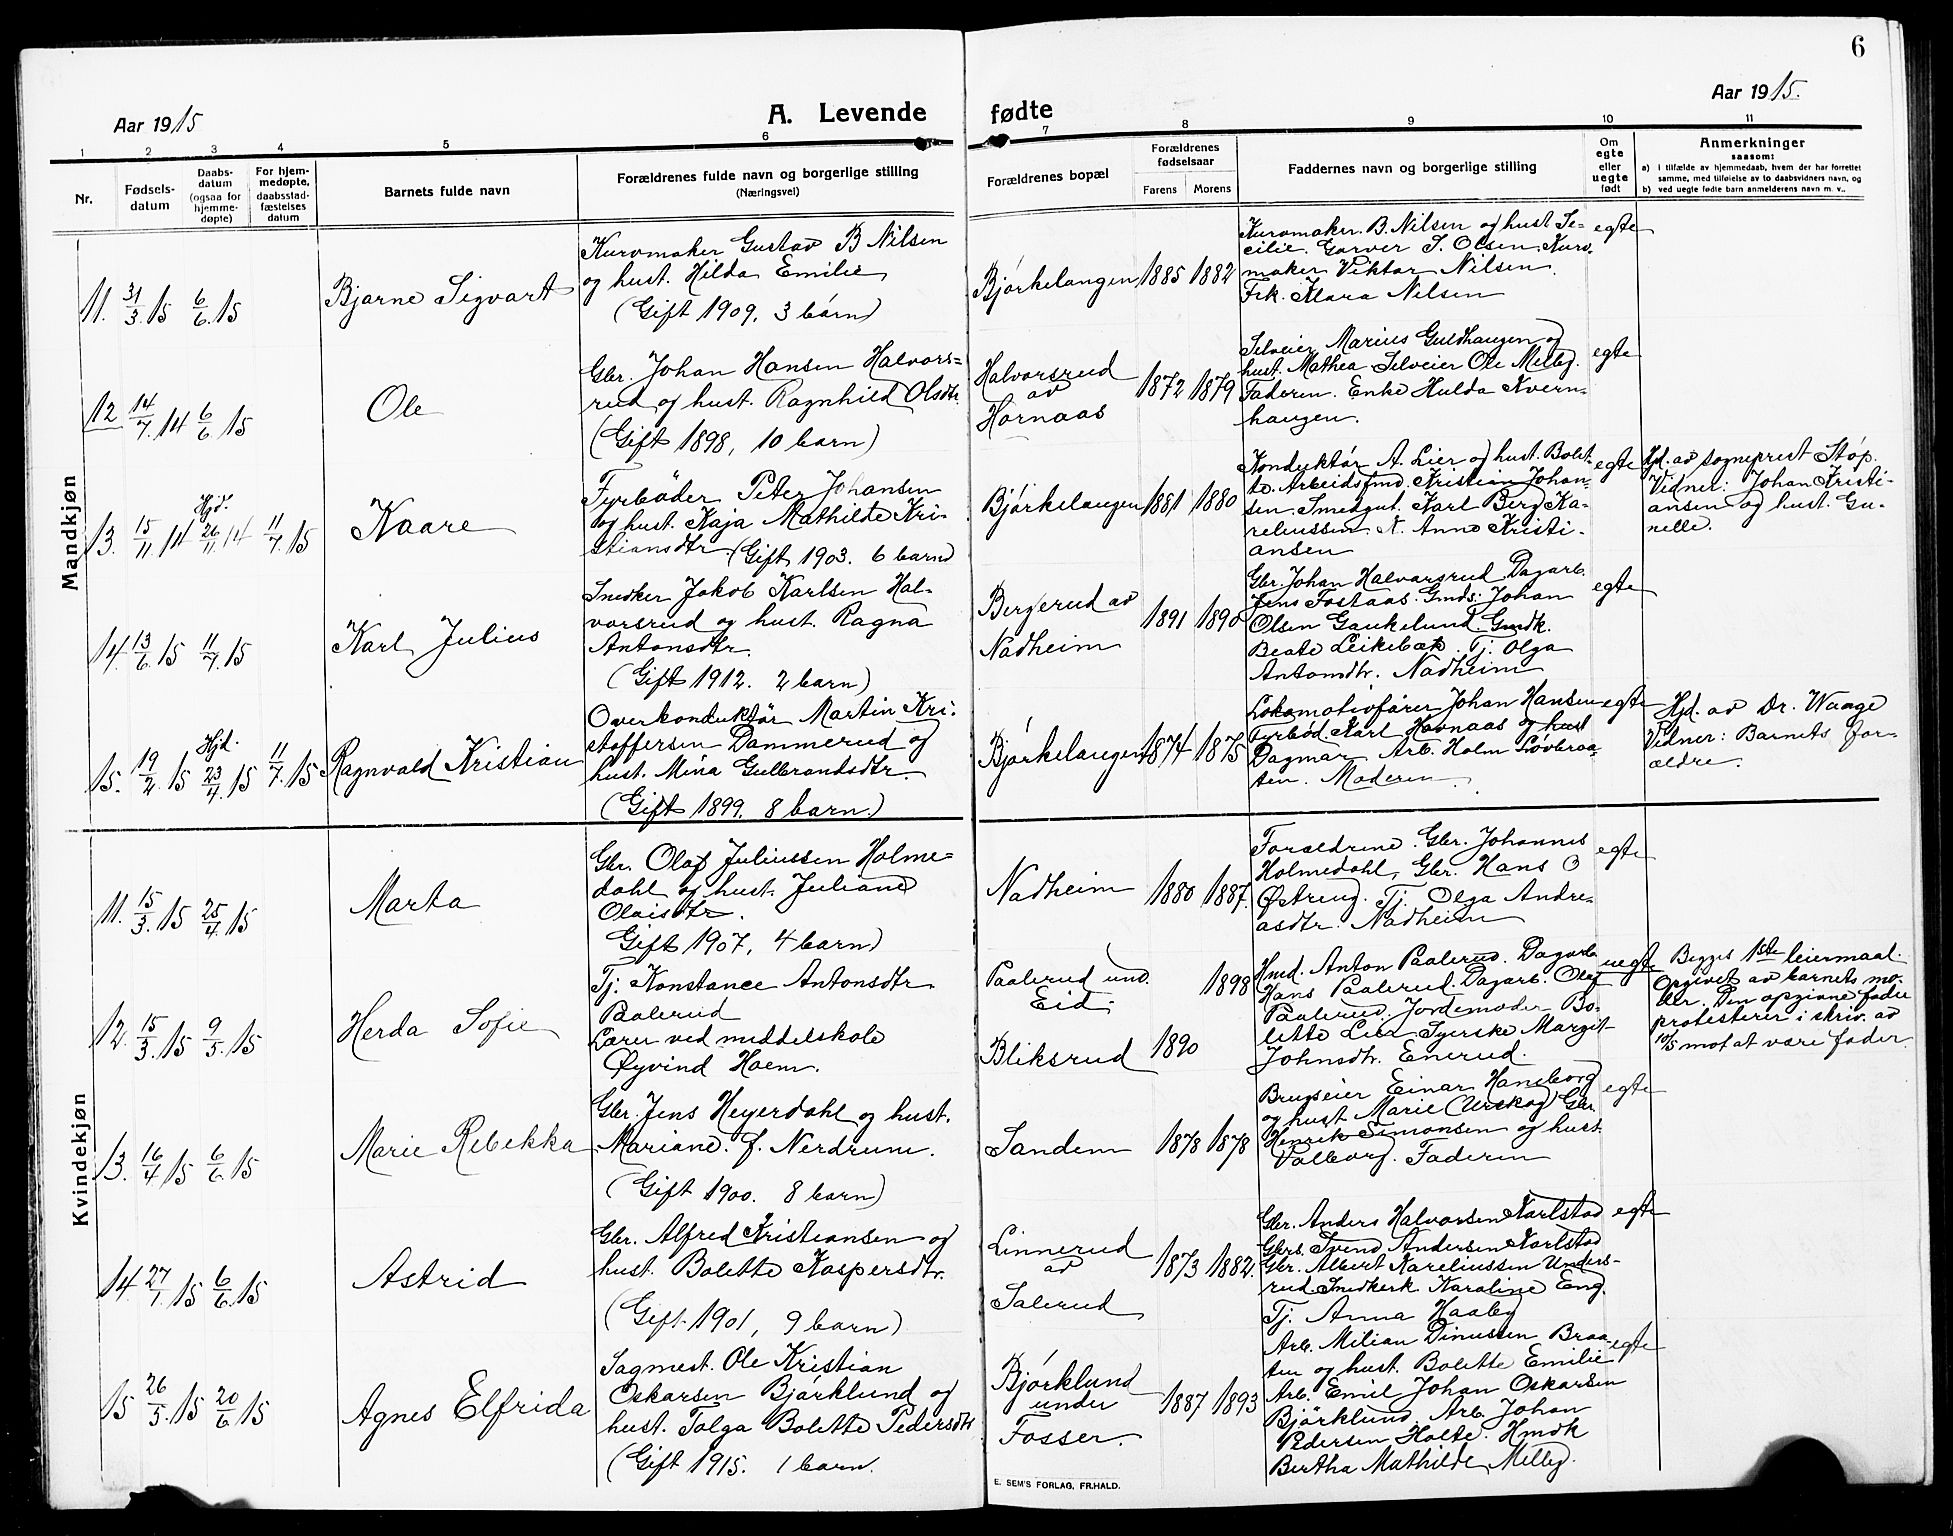 6
Aar 1915
A. Levende fødte
Aar 1915.
1 2 3 4 5 6 7 8 9 10 11
Nr.
Fødsels-
datum
Daabs-
datum
(ogsaa for
hjemme-
døpte)
For hjem-
medøpte,
daabsstad-
fæstelses
datum
Barnets fulde navn
Forældrenes fulde navn og borgerlige stilling
(Næringsvei)
Forældrenes bopæl
Forældrenes
fødselsaar
Farens Morens
Faddernes navn og borgerlige stilling
Om
egte
eller
uegte
født
Anmerkninger
saasom:
a) i tilfælde av hjemmedaab, hvem der har forrettet
samme, med tilføielse av to daabsvidners navn, og
b) ved uegte fødte barn anmelderens navn m. v..
Mandkjøn
11. 31/3. 15 6/6. 15
Bjarne Sigvart
Kurvmaker Gustav B Nilsen
og hust. Hilda Emilie
(Gift 1909, 3 børn)
Bjørkelangen 1885 1882
Kurvmaker B. Nilsen og hust Se-
cilie. Garver S. Olsen. Kurv.
maker Viktor Nilsen.
Frk. Klara Nilsen
egte
12 14/7. 14 6/6. 15
Ole
Gbr. Johan Hansen Halvors=
rud og hust. Ragnhild Olsdtr.
(Gift 1898, 10 barn)
Halvorsrud
av
Hornaas
1872 1879
Selveier Marius Guldhaugen og
hust. Mathea Selveier Ole Melby.
Faderen. Enke Hulda Kvern-
haugen.
egte
13. 15/11. 14 Hjd. 26/11. 14 11/7. 15
Kaare
Fyrbøder Peter Johansen
og hust. Kaja Mathilde Kri-
stiansdtr (Gift 1903. 6 barn)
Bjørkelangen 1881 1880
Konduktør A. Lier og hust. Bolet-
te. Arbeidsfmd. Kristian Johan-
sen. Smedgut. Karl Berg Ka-
reliussen. N. Anne Kristi-
ansen
egte
Hjd. av sogneprest Støp.
Vidner: Johan Kristi-
ansen og hust. Gu-
nelle.
14. 13/6. 15 11/7. 15
Karl Julius
Snedker Jakob Karlsen Hal-
vorsrud og hust. Ragna
Antonsdtr.
(Gift 1912. 2 barn)
Bergerud av
Nadheim
1891 1890
Gbr. Johan Halvorsrud Dagarb.
Jens Fostaas. Gmds. Johan
Olsen Gaukelund. Gmdk.
Beate Leikebæk. Tj. Olga
Antonsdtr. Nadheim
egte
15. 19/2. 15 Hjd. 23/4. 15 11/7. 15
Ragnvald Kristian
Overkonduktør Martin Kri-
stoffersen Dammerud og
hust. Mina Gulbrandsdtr.
(Gift 1899. 8 barn.)
Bjørkelangen 1874 1875
Lokomotivfører Johan Hansen
Fyrbød. Karl Hovnaas og hust
Dagmar Arb. Holm
ten. Moderen.
egte
Hjd. av Dr. Waage
Vidner: Barnets for-
ældre.
Kvindekjøn
11. 15/3. 15 25/4. 15
Marta
Gbr. Olaf Juliussen Holme=
dahl og hust. Juliane
Olaisdtr.
Gift 1907, 4 barn)
Nadheim 1880 1887.
Forældrene. Gbr. Johannes
Holmedahl, Gbr. Hans O
Østreng. Tj. Olga Andre-
asdtr. Nadheim
egte
12. 15/3. 15 9/5. 15
Herda Sofie
Tj. Konstance Antonsdtr
Paalerud
Lærer ved middelskole
Øyvind Hoem.
Paalerud und.
Eid.
Bliksrud
1890 1898
Hmd. Anton Paalerud. Dagarb
Hans Paalerud. Dagarb. Olaf
Paalerud. Jordemoder Bo-
lette Lied Syerske Margit
Johnsdtr. Enerud.
uegte
Begges 1ste leiermaal.
Opgivet av barnets mo-
der. Den opgivne fader
protesterer i skriv. av
10/5 mot at være fader.
13. 16/4 15 6/6. 15
Marie Rebekka
Gbr. Jens Heyerdahl og hust.
Mariane. f. Nerdrum.
(Gift 1900. 8 barn)
Sandem 1878 1878
Brugseier Einar Haneborg
og hust Marie (Urskog) Gbr.
Henrik Simonsen og hust.
Valborg. Faderen
egte
14. 27/1. 15 6/6. 15
Astrid
Gbr. Alfred Kristiansen og
hust. Bolette Kaspersdtr.
(Gift 1901, 9 barn)
Linnerud
av
Salerud
1873 1882.
Gbr. Anders Halvorsen Karlstad
Gbrs. Svend Andersen Karlstad
Gbr. Albert Kareliussen Unders-
rud Snedkerk Karoline Eng.
Tj. Anna Haaby
egte
15 26/5. 15 20/6. 15
Agnes Elfrida
Sagmest. Ole Kristian
Oskarsen Bjørklund og
hust. Tolga Bolette Pedersdtr
(Gift 1915. 1 barn.
Bjørklund
under
Fosser.
1887 1893
Arb. Milian Dinussen Braa-
ten og hust. Bolette Emilie
Arb. Emil Johan Oskarsen
Bjørklund. Arb. Johan
Pedersen Holte. Hmdk
Bertha Mathilde Melby.
egte
E. SEM'S FORLAG, FR.HALD.